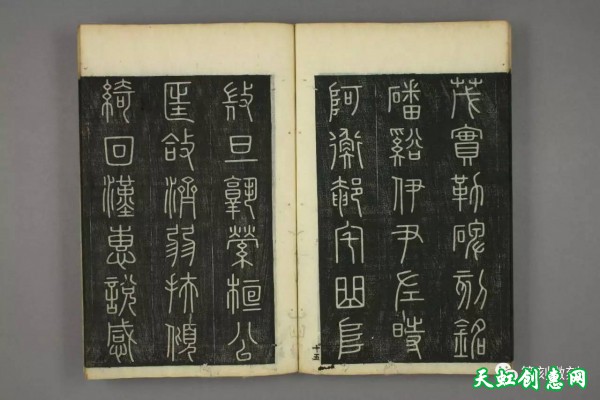 茂實勒碑刻銘
磻谿伊尹左時
阿衡郁宅曲阜
旦孰縈桓公
匡敆濟弱扶傾
綺回漢惠說感
十五
天虹创惠网